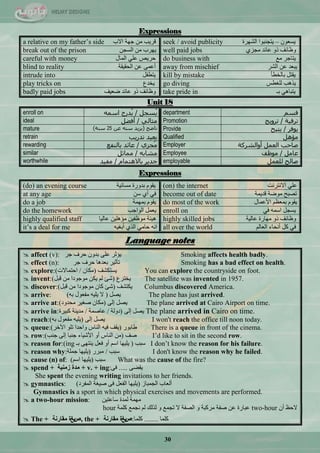 HELMY DESIGNS
Expressions
a relative on my father's side قريب من جهة الأب
seek / avoid publicity يسعون .. يتجنبوا الشهرة
break out of the prison يهرب من السجن
well paid jobs وظائف ذو عائد مجزي
careful with money حريص علي المال
do business with يتاجر مع
blind to reality أعمي عن الحقيقة
away from mischief يبعد عن الشر
intrude into يتطفل
kill by mistake يقتل بالخطأ
play tricks on يخدع
go diving يذهب للغطس
badly paid jobs وظائف ذو عائد ضعيف
take pride in يتباهي بـ
Unit 18
enroll on يسجل / يدرج اسمه
department قسم
ideal مثالي / أفضل
Promotion ترقية / ترويج
mature ناضج (يزيد سنه عن 25 سنه)
Provide يوفر / يتيح
retrain يعيد تدريب
Qualified مؤهل
rewarding مجزي / عائد بالنفع
Employer صاحب العمل أو الشركة
similar مشابه / مماثل
Employee عامل / موظف
worthwhile جدير بالاهتمام / مفيد
employable صالح للعمل
Expressions
(do) an evening course يقوم بدورة مسائية
(on) the internet علي الانترنت
at any age في أي سن
become out of date تصبح موضة قديمة
do a job يقوم بمهمة
do most of the work يقوم بمعظم الأعمال
do the homework يعمل الواجب
enroll on يسجل اسمه في
highly qualified staff هيئة موظفين مؤهلين عاليا
highly skilled jobs وظائف ذو مهارة عالية
it's a deal for me إنه حلمي الذي أبغيه
all over the world في كل أنحاء العالم
Language notes
affect (v): يؤثر علي بدون حرف جر Smoking affects health badly.
effect (n): تأثير بعدها حرف جر Smoking has a bad effect on health.
explore:(مكان / احتمالات) يستكشف You can explore the countryside on foot.
invent:(شئ لم يكن موجودا من قبل) يخترع The satellite was invented in 1957.
discover:(شئ كان موجودا من قبل) يكتشف Columbus discovered America.
arrive: يصل (لا يليه مفعول به) The plane has just arrived.
arrive at:يصل إلي (مكان صغير محدود) The plane arrived at Cairo Airport on time.
arrive in:يصل إلي (دولة / عاصمة / مدينة كبيرة) The plane arrived in Cairo on time.
reach:يصل إلي (يليه مفعول به) I won't reach the office till noon today.
queue:طابور (يقف فيه الناس واحدا تلو الآخر) There is a queue in front of the cinema.
row:صف (من الناس أو الأشياء جنبا إلي جنب) I'd like to sit in the second row.
reason for:(يليها اسم أو فعل ينتهي بـ ing) سبب I don't know the reason for his failure.
reason why:(يليها جملة) سبب / مبرر I don't know the reason why he failed.
cause (n) of: سبب (يليها اسم) What was the cause of the fire?
spend + مدة زمنية + v. + ing: يقضي .... في
She spent the evening writing invitations to her friends.
gymnastics: ألعاب الجمباز (يليها الفعل في صيغة المفرد)
Gymnastics is a sport in which physical exercises and movements are performed.
a two-hour mission: مهمة لمدة ساعتين
لاحظ أن two-hour عبارة عن صفة مركبة و الصفة لا تجمع و لذلك لم تجمع كلمة hour
The + صفة مقارنة, the + صفة مقارنة:كلما ........ كلما
30